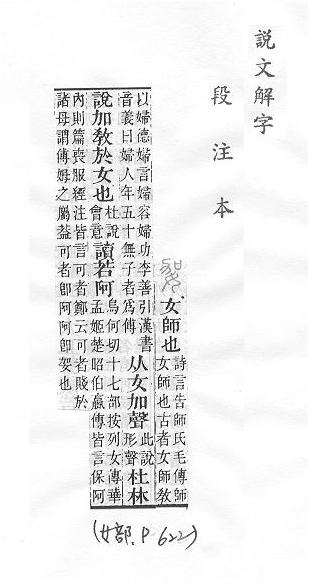 說文解字
段注本
女師也
詩言告師氏毛傳師
女師也古者女師教
以婦德婦言婦容婦功李善引漢書
音義曰婦人年五十無子者爲傅
从女加聲
此說
形聲
杜林
說加教於女也
杜說
會意
讀若阿
烏何切十七部按列女傳華
孟姬楚昭伯嬴傳皆言保阿
內則篇喪服經注皆言可者鄭云可者賤於
諸母謂傅姆之屬葢可者卽阿阿卽妿也
(女部.P622)